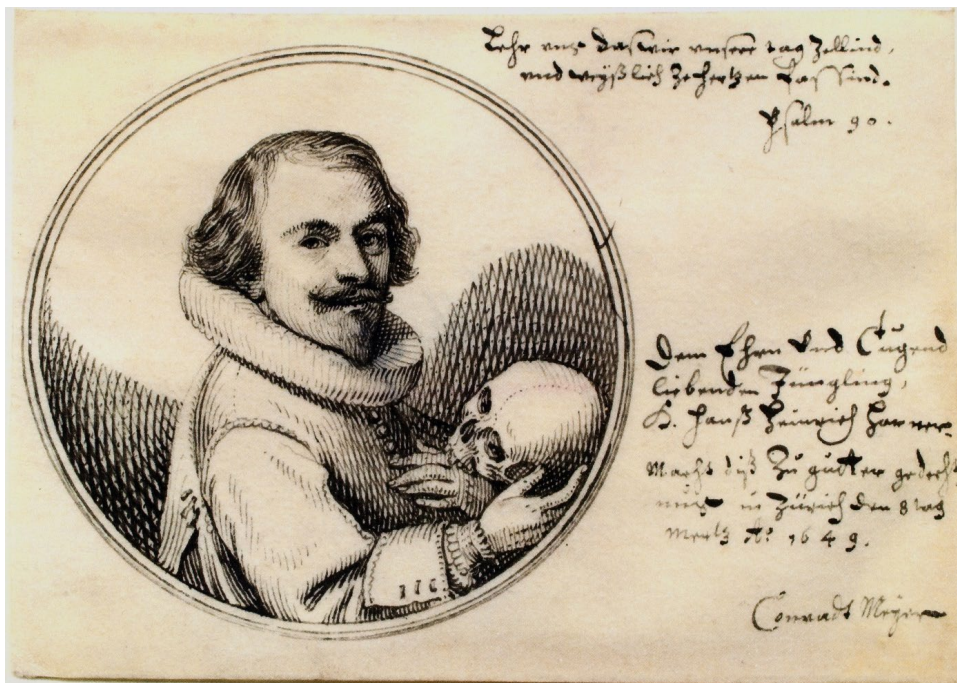 Lehr uns das wir unsere tag zellind,
und weyßlich ze hertzen fassind.
Psalm 90.
Dem Ehrn und Tugend
liebenden Jüngling,
H. Hanß Heinrich
Macht diß zu gutter gedecht
nuß in Zürich den 8 tag
Mertz A: 1649.
Conradt Meyer